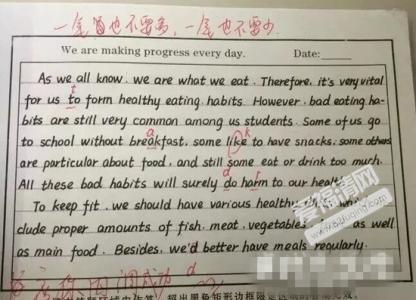 一字也不要多,一字也不要少
We are making progress every day. Date:
As we all know, we are what we eat. Therefore, it's very vital
t
for us to form healthy eating habits. However, bad eating ha-
bits are still very common among us students. Some of us go
a k
to school without breakfast, some like to have snacks, some others
are particular about food, and still some eat or drink too much.
d r
All these bad habits will surely do harm to our heal
To keep fit, we should have various healthy
clude proper amounts of fish, meat, vegetables as well
as main food. Besides, we'd better have meals regularly.
爱福清网